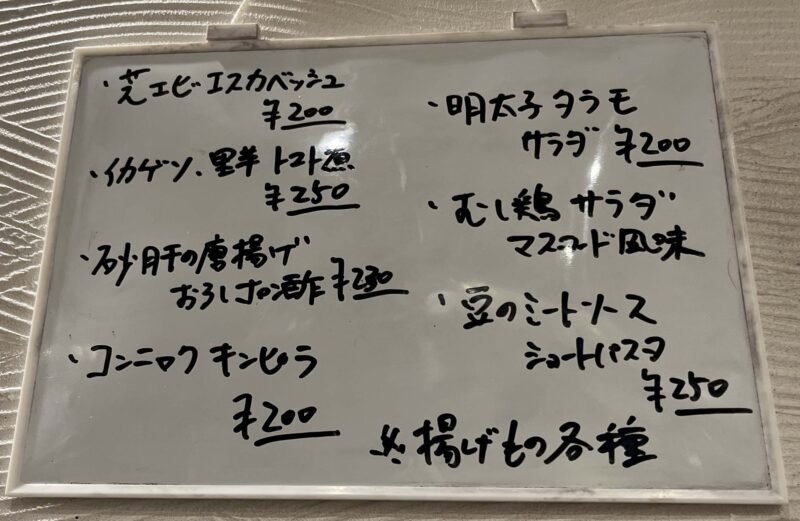 ・芝エビ エスカベッシュ
¥200
・イカゲソ、里芋 トマト煮
¥250
・砂肝の唐揚げ
おろしポン酢 ¥230
・コンニャク キンピラ
¥200
・明太子 タラモ
サラダ ¥200
・むし鶏 サラダ
マスタード風味
・豆のミートソース
ショートパスタ
¥250
※揚げもの各種